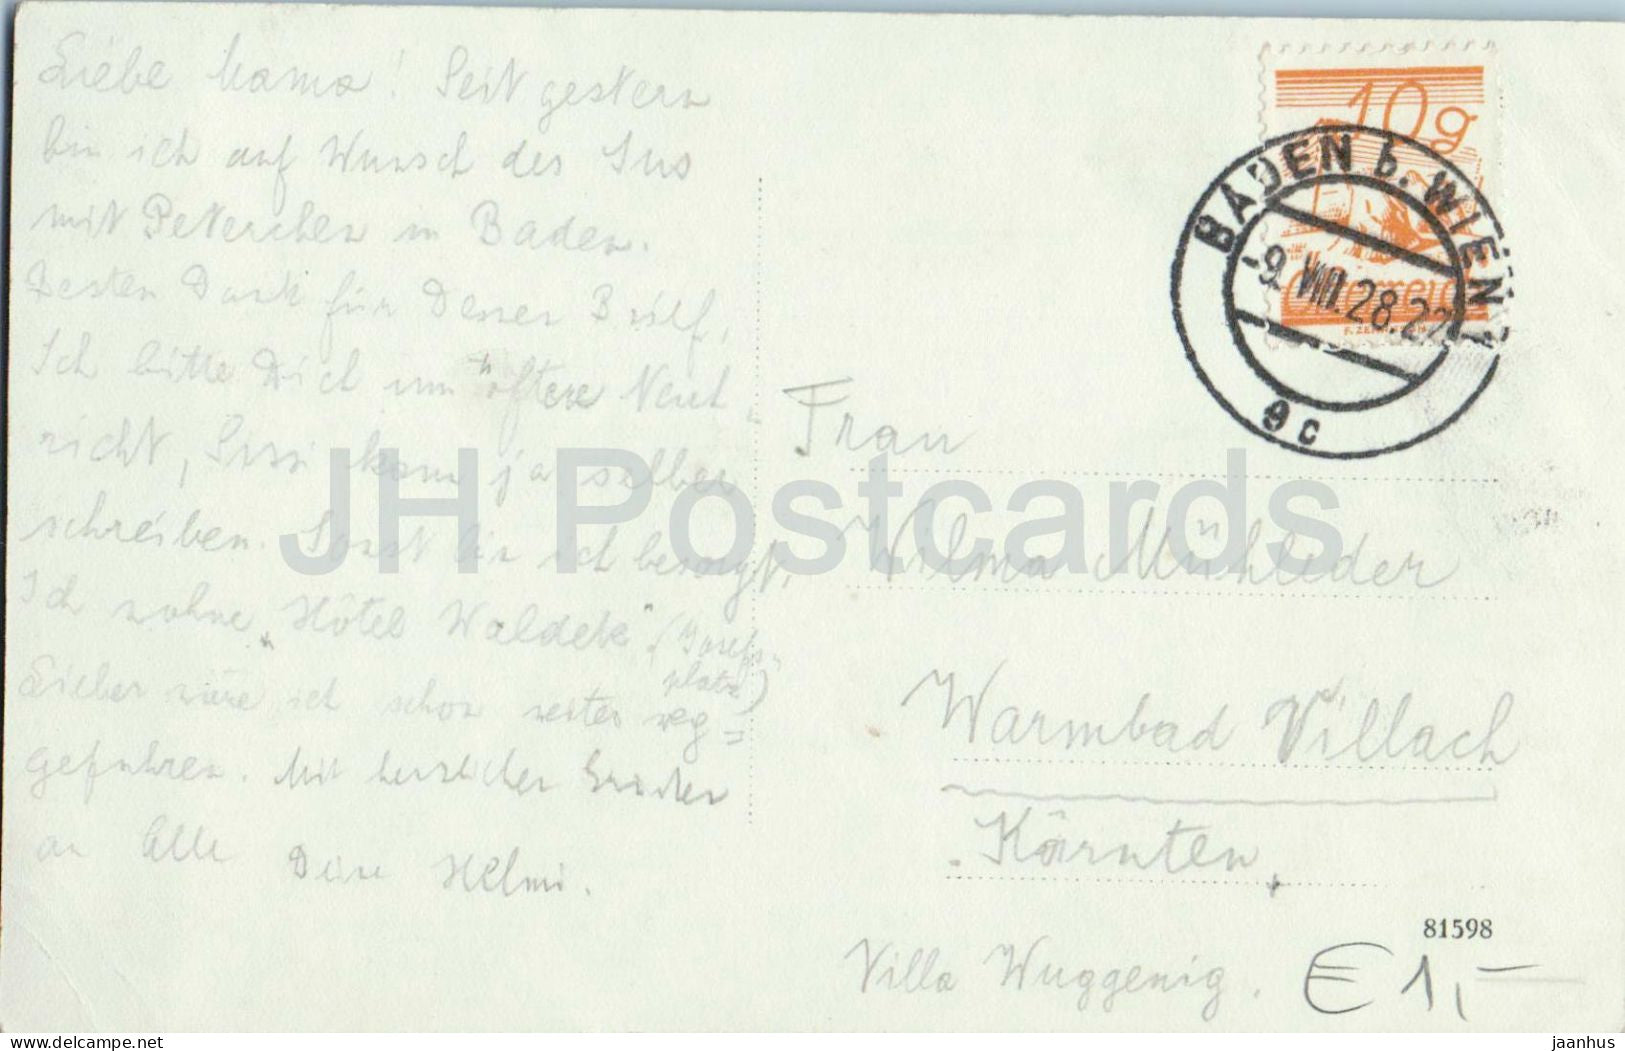 Liebe Mama! Seit gestern
bin ich auf Wunsch des Sus
mit Peterchen in Baden.
Besten Dank für Deinen Brief,
Ich bitte Dich um öftere Nach-
richt, Sissi kann ja selber
schreiben. Sonst bin ich besorgt.
Ich wohne "Hôtel Waldek" (Josefs-
platz)
Lieber wäre ich schon weiter weg=
gefahren. Mit herzlichen Grüßen
an Alle Deine Helmi.
10g
Österreich
BADEN b. WIEN 1
-9. VIII. 28. 22
9c
Frau
Wilma Mühleder
Warmbad Villach
Kärnten.
Villa Wuggenig.
81598
€ 1,-
JH Postcards
www.delcampe.net
jaanhus